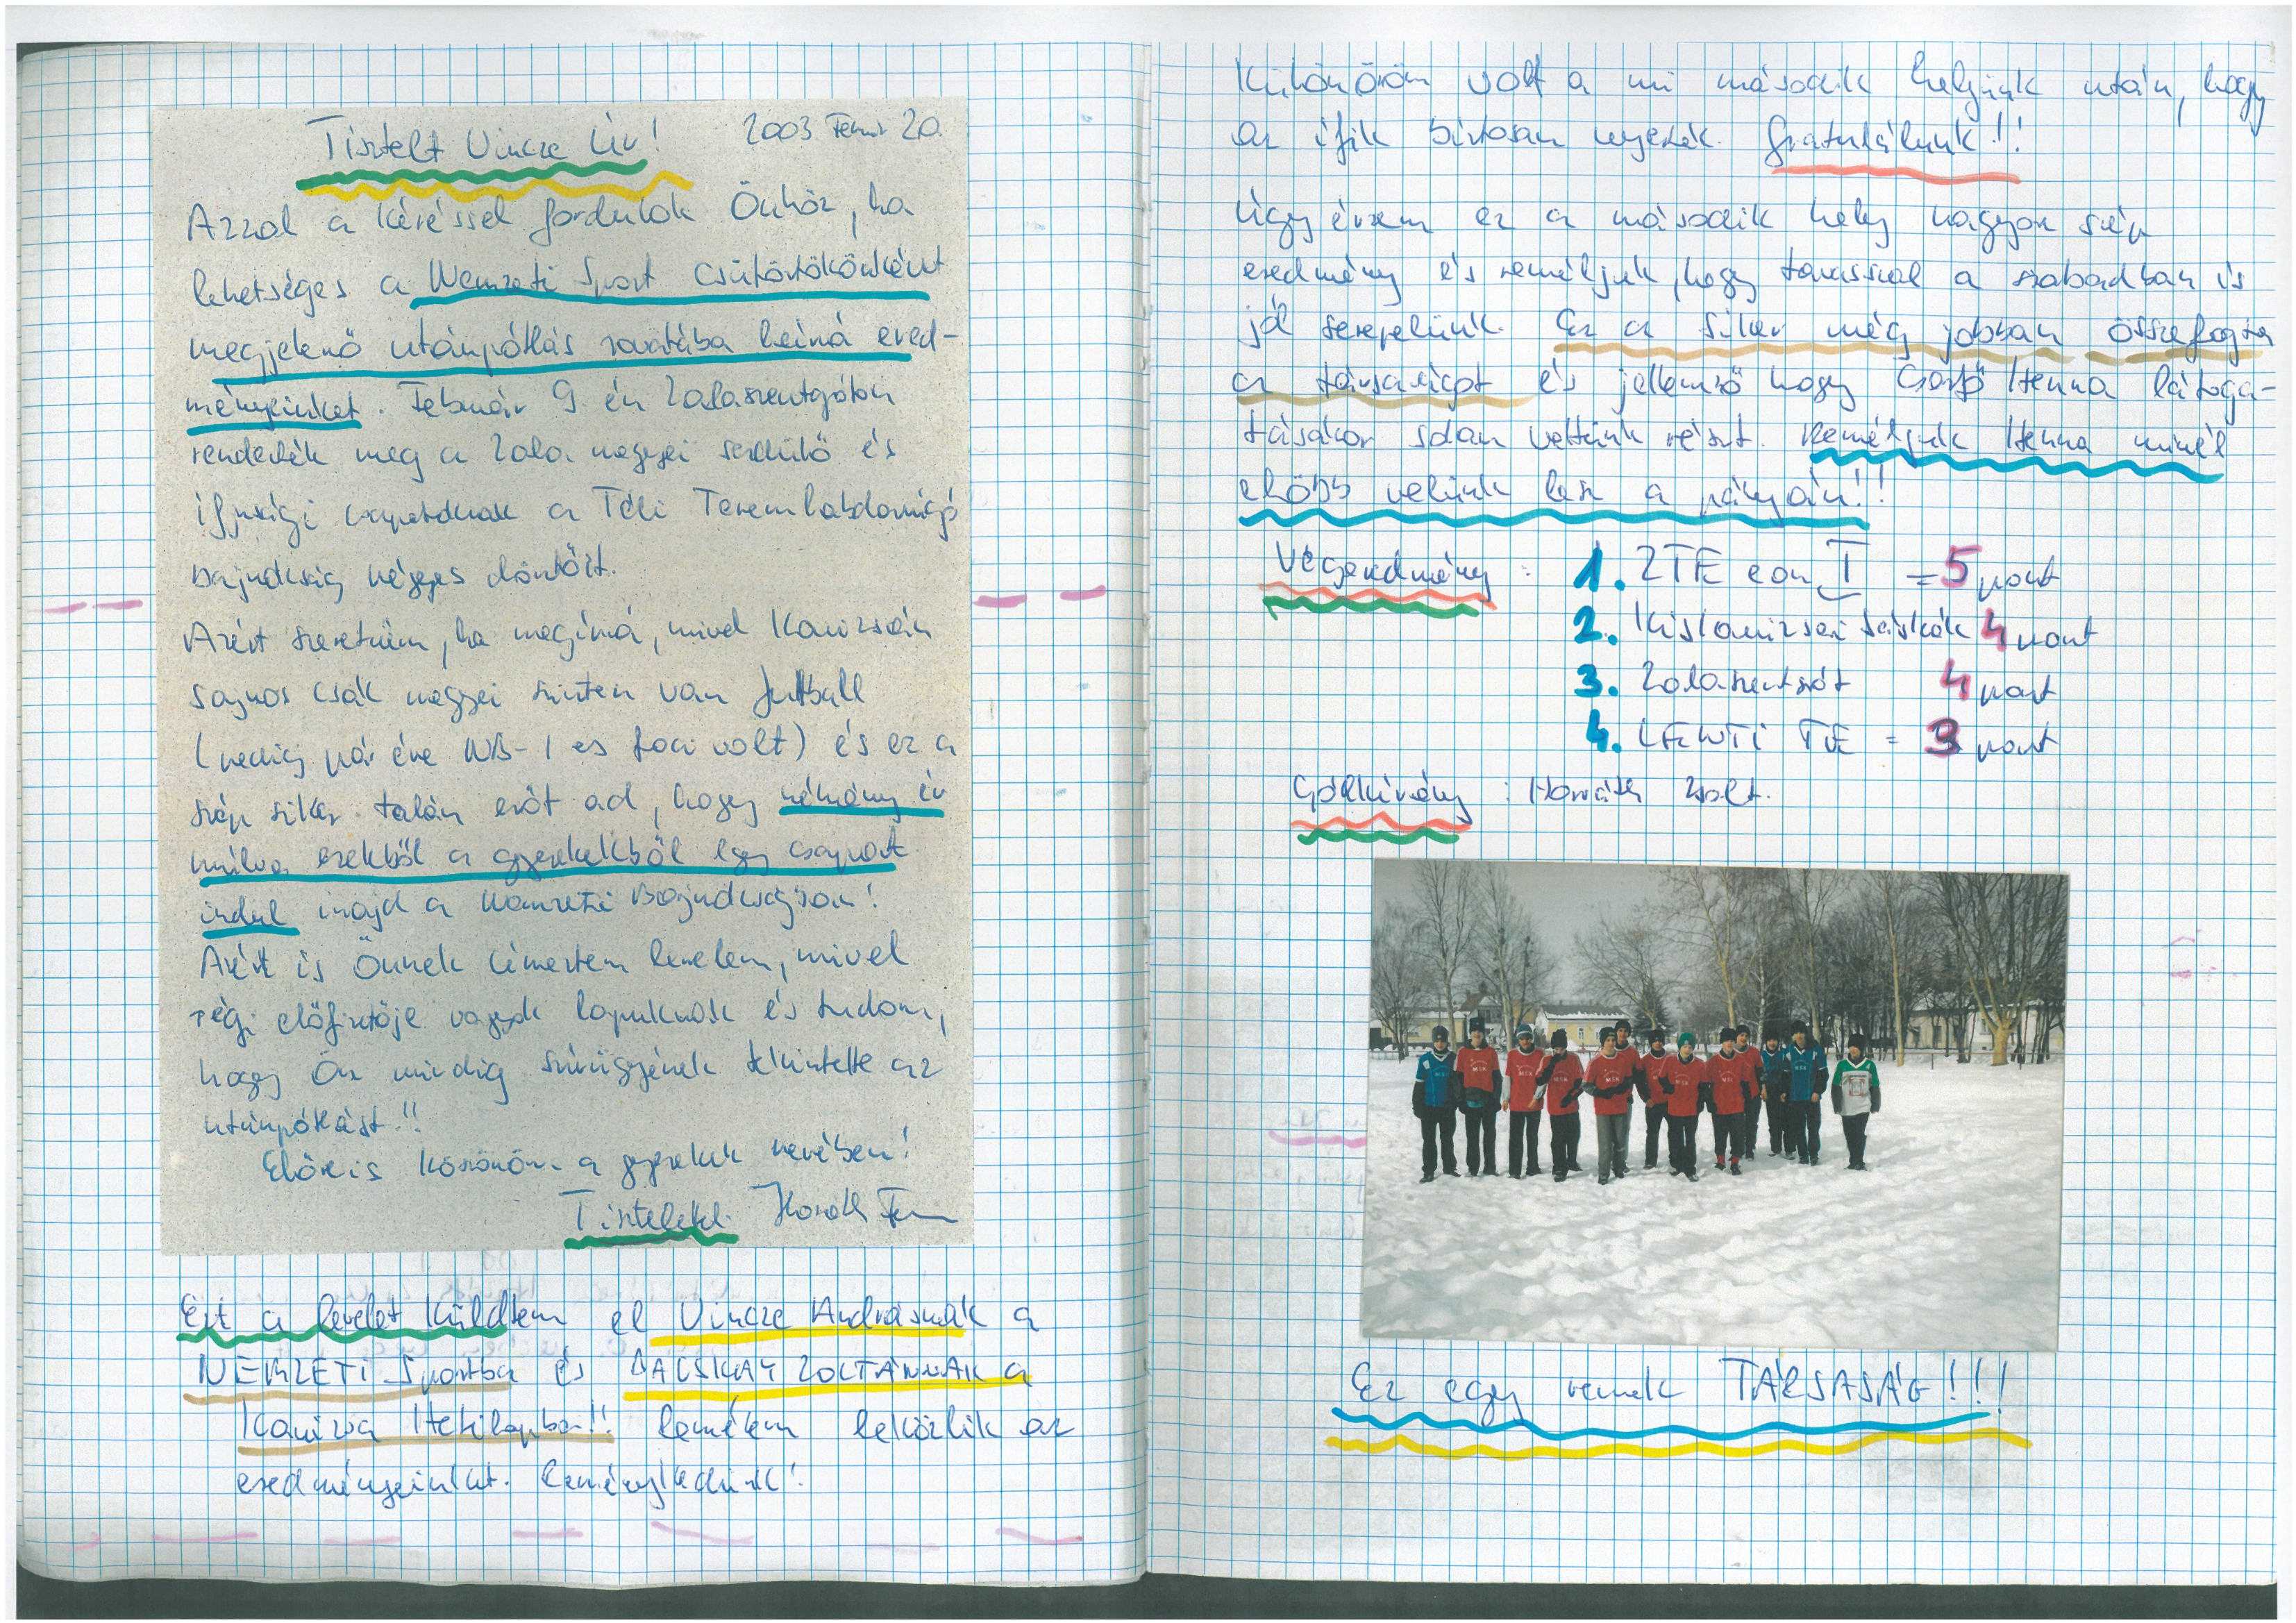 Tisztelt Vincze Úr! 2003 Febru 20.
Azzal a kéréssel fordulok Önhöz, ha
lehetséges a Nemzeti Sport csütörtökönként
megjelenő utánpótlás rovatába beírná ered-
ményeinket. Február 9 én Zalaszentgróton
rendezték meg a Zala megyei serdülő és
ifjúsági csapatoknak a Téli Teremlabdarúgó
Bajnokság négyes döntőit.
Azért szeretném, ha megírná, mivel Kanizsán
sajnos csak megyei szinten van futball
(pedig pár éve NB-I es foci volt) és ez a
szép siker talán erőt ad, hogy néhány év
múlva ezekből a gyerekekből egy csapat
indul majd a Nemzeti Bajnokságban!
Azért is Önnek címeztem levelem, mivel
régi előfizetője vagyok lapuknak és tudom,
hogy Ön mindig szívügyének tekintette az
utánpótlást!!
Előre is köszönöm a gyerekek nevében!
Tisztelettel Horváth
Ezt a levelet küldtem el Vincze Andrásnak a
NEMZETI Sportba és BACSKAY ZOLTÁNNAK a
Kanizsa Hetilapba!! Remélem leközlik az
eredményeinket. Reménykedünk!
Külön öröm volt a mi második helyünk után, hogy
az ifik biztosan nyerték. Gratulálunk!!
Úgy érzem ez a második hely nagyon szép
eredmény és reméljük, hogy tavasszal a szabadban is
jól szerepelünk. Ez a siker még jobban összefogta
a társaságot és jellemző hogy Henna látoga-
tásakor sokan vettünk részt. Reméljük Henna minél
előbb velünk lesz a pályán!!
Végeredmény: 1. ZTE I = 5 pont
2. Kiskanizsai Sáskák 4 pont
3. Zalaszentgrót 4 pont
4. LENTI TE = 3 pont
Gólkirály: Horváth Zsolt.
Ez egy remek TÁRSASÁG!!!